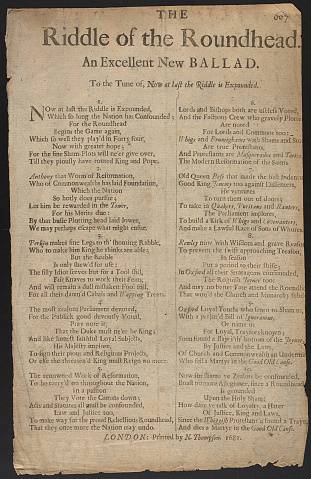 THE
Riddle of the Roundhead:
An Excellent New BALLAD.
To the Tune of, Now at last the Riddle is Expounded.
1.
NOw at last the Riddle is Expounded,
Which so long the Nation has Confounded;
For the Roundhead
Begins the Game again,
Which so well they play'd in Forty four,
Now with greater hope;
For the fine Sham-Plots will ne'er give over,
Till they plainly have routed King and Pope.
2.
Anthony that Worm of Reformation,
Who of Commonwealth has laid Foundation,
Which the Nation
So body does pursue;
Let him be rewarded in the Tower,
For his Merits due:
By that basie Plotting head laid lower,
We may perhaps escape what might ensue.
3.
Perkin makes fine Legs to th' shouting Rabble,
Who to make him King he thinks are able;
But the Bauble
Is only shew'd for use;
The silly Idiot serves but for a Tool still,
For Knaves to work their Feats;
And will remain a dull mistaken Fool still,
For all their damn'd Cabals and Wapping Treats.
4.
The most zealous Parliament devoted,
For the Publick good devoutly Noted,
Pray note it;
That the Duke must ne're be King;
And like some faithful Loyal Subjects,
His Majesty implore,
To sign their pious and Religious Projects,
Or else the thirteen'd King must Reign no more.
5.
The renowned Work of Reformation,
To be carry'd on throughout the Nation,
In a passion
They Vote the Canons down;
Acts and Statutes all must be confounded,
Law and Justice too,
To make way for the proud Rebellious Roundhead,
That they once more the Nation may undo.
6.
Lords and Bishops both are useless Voted,
And the Factious Crew who gravely Plotted
Are noted
For Lords and Commons too:
Whigs and Brumigham with Shams and Stories
Are true Protestants,
And Protestants are Masqueraders and Tories,
The Modern Reformation of the Saints.
7.
Old Queen Bess that made the bold Indenture,
Good King Jemmy too against Dissenters,
He ventures
To turn them out of doors;
To take in Quakers, Puritans and Ranters,
The Parliament implores,
To build a Kirk of Whigs and Covenanters,
And make a Lawful Race of Sons of Whores.
8.
Rowley now with Wisdom and grave Reason,
To prevent the swift approaching Treason,
In season
Put a period to their strife;
In Oxford all their Stratagems confounded,
The Rogues'h Joyner too;
And may no better Fate attend the Roundhead,
That wou'd the Church and Monarchy subdue.
9.
Oxford Loyal Youths who scorn to Sham us,
With a perjur'd Bill of Ignoramus,
Or name us
For Loyal, Traytors known;
Of Church and Commonwealth an Undermine,
Who fell a Martyr in the Good Old Cause.
10.
Now for shame ye Zealots be confounded,
Upon the Holy Sham:
How dare ye talk of Loyalty, a Hater
Of Justice, King and Laws,
And dies a Martyr to the Good Old Cause.
LONDON: Printed by N. Thompson 1681.